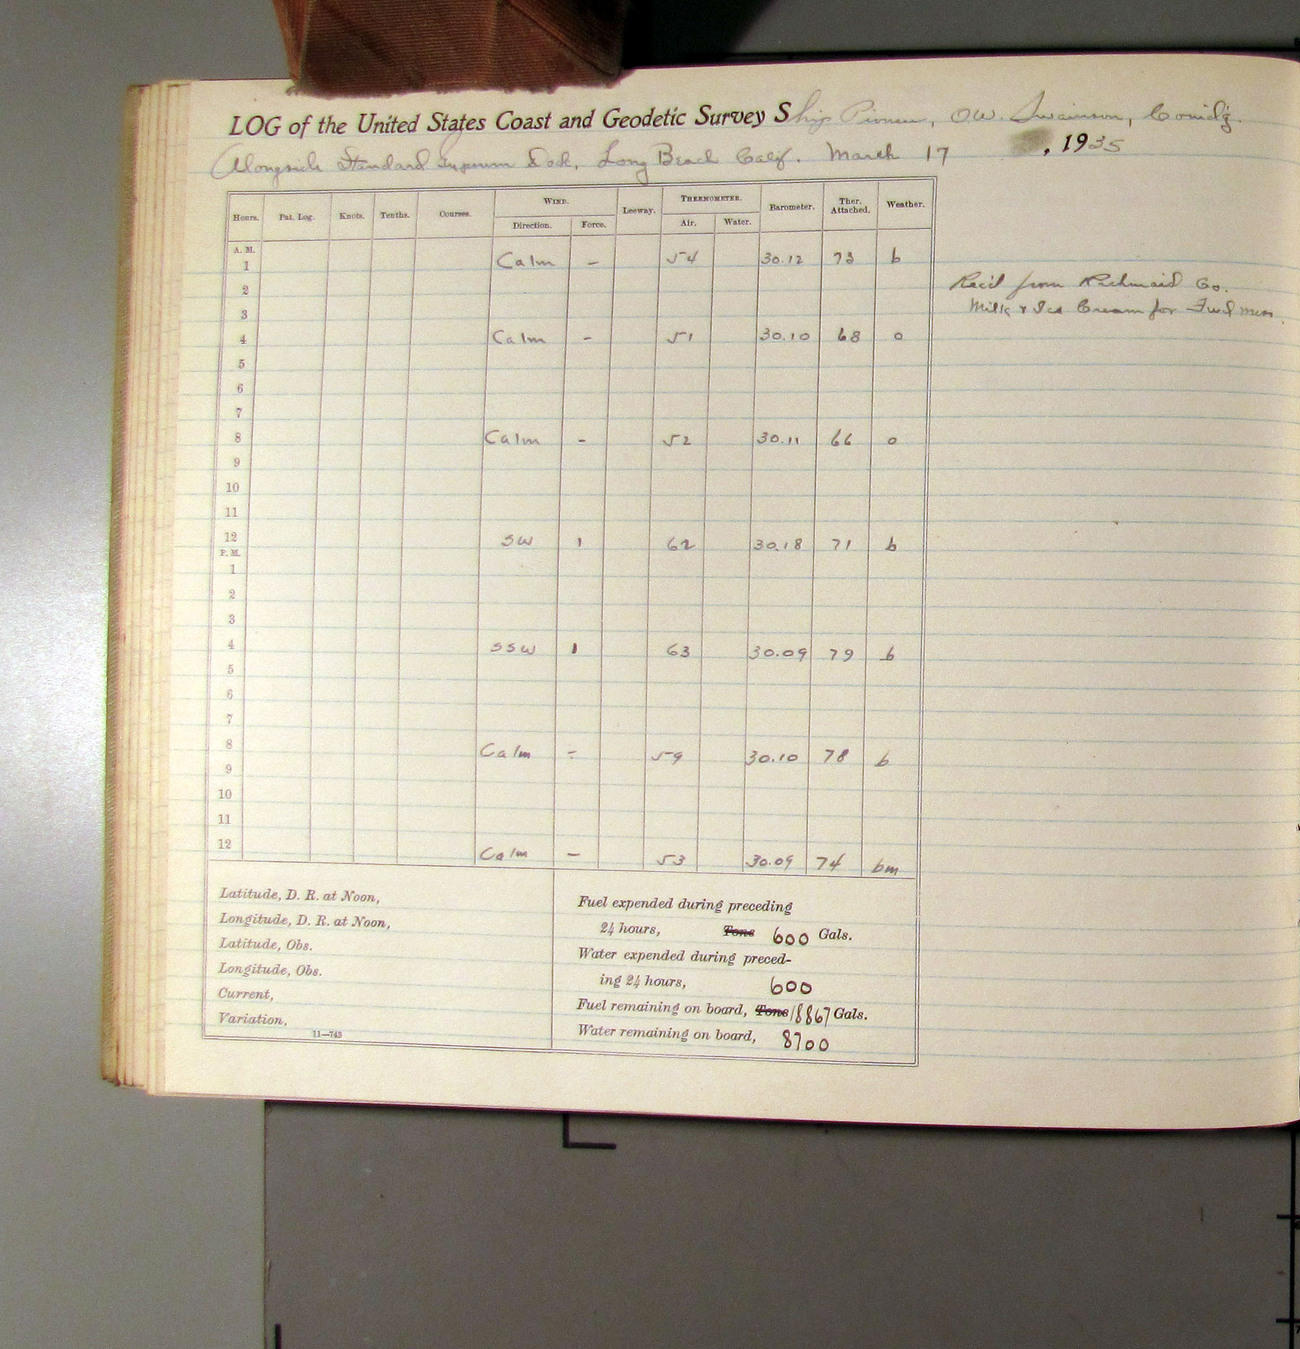 LOG of the United States Coast and Geodetic Survey Ship Pioneer, O.W. Swainson, Comdg.
Alongside Standard Gypsum Dock, Long Beach Calif. March 17, 1935
Hours. Pat. Log. Knots. Tenths. Courses. WIND. Leeway. THERMOMETER. Barometer. Ther. Attached. Weather.
Direction. Force. Air. Water.
A. M.
1 Calm - 54 30.12 73 b
2
3
4 Calm - 51 30.10 68 o
5
6
7
8 Calm - 52 30.11 66 o
9
10
11
12 SW 1 62 30.18 71 b
P. M.
1
2
3
4 SSW 1 63 30.09 79 b
5
6
7
8 Calm - 59 30.10 78 b
9
10
11
12 Calm - 53 30.09 74 bm
Rec'd from Co.
Milk & Ice Cream for mess
Latitude, D. R. at Noon,
Longitude, D. R. at Noon,
Latitude, Obs.
Longitude, Obs.
Current,
Variation,
11—743
Fuel expended during preceding
24 hours, Tons 600 Gals.
Water expended during preced-
ing 24 hours, 600
Fuel remaining on board, Tons 18867 Gals.
Water remaining on board, 8700